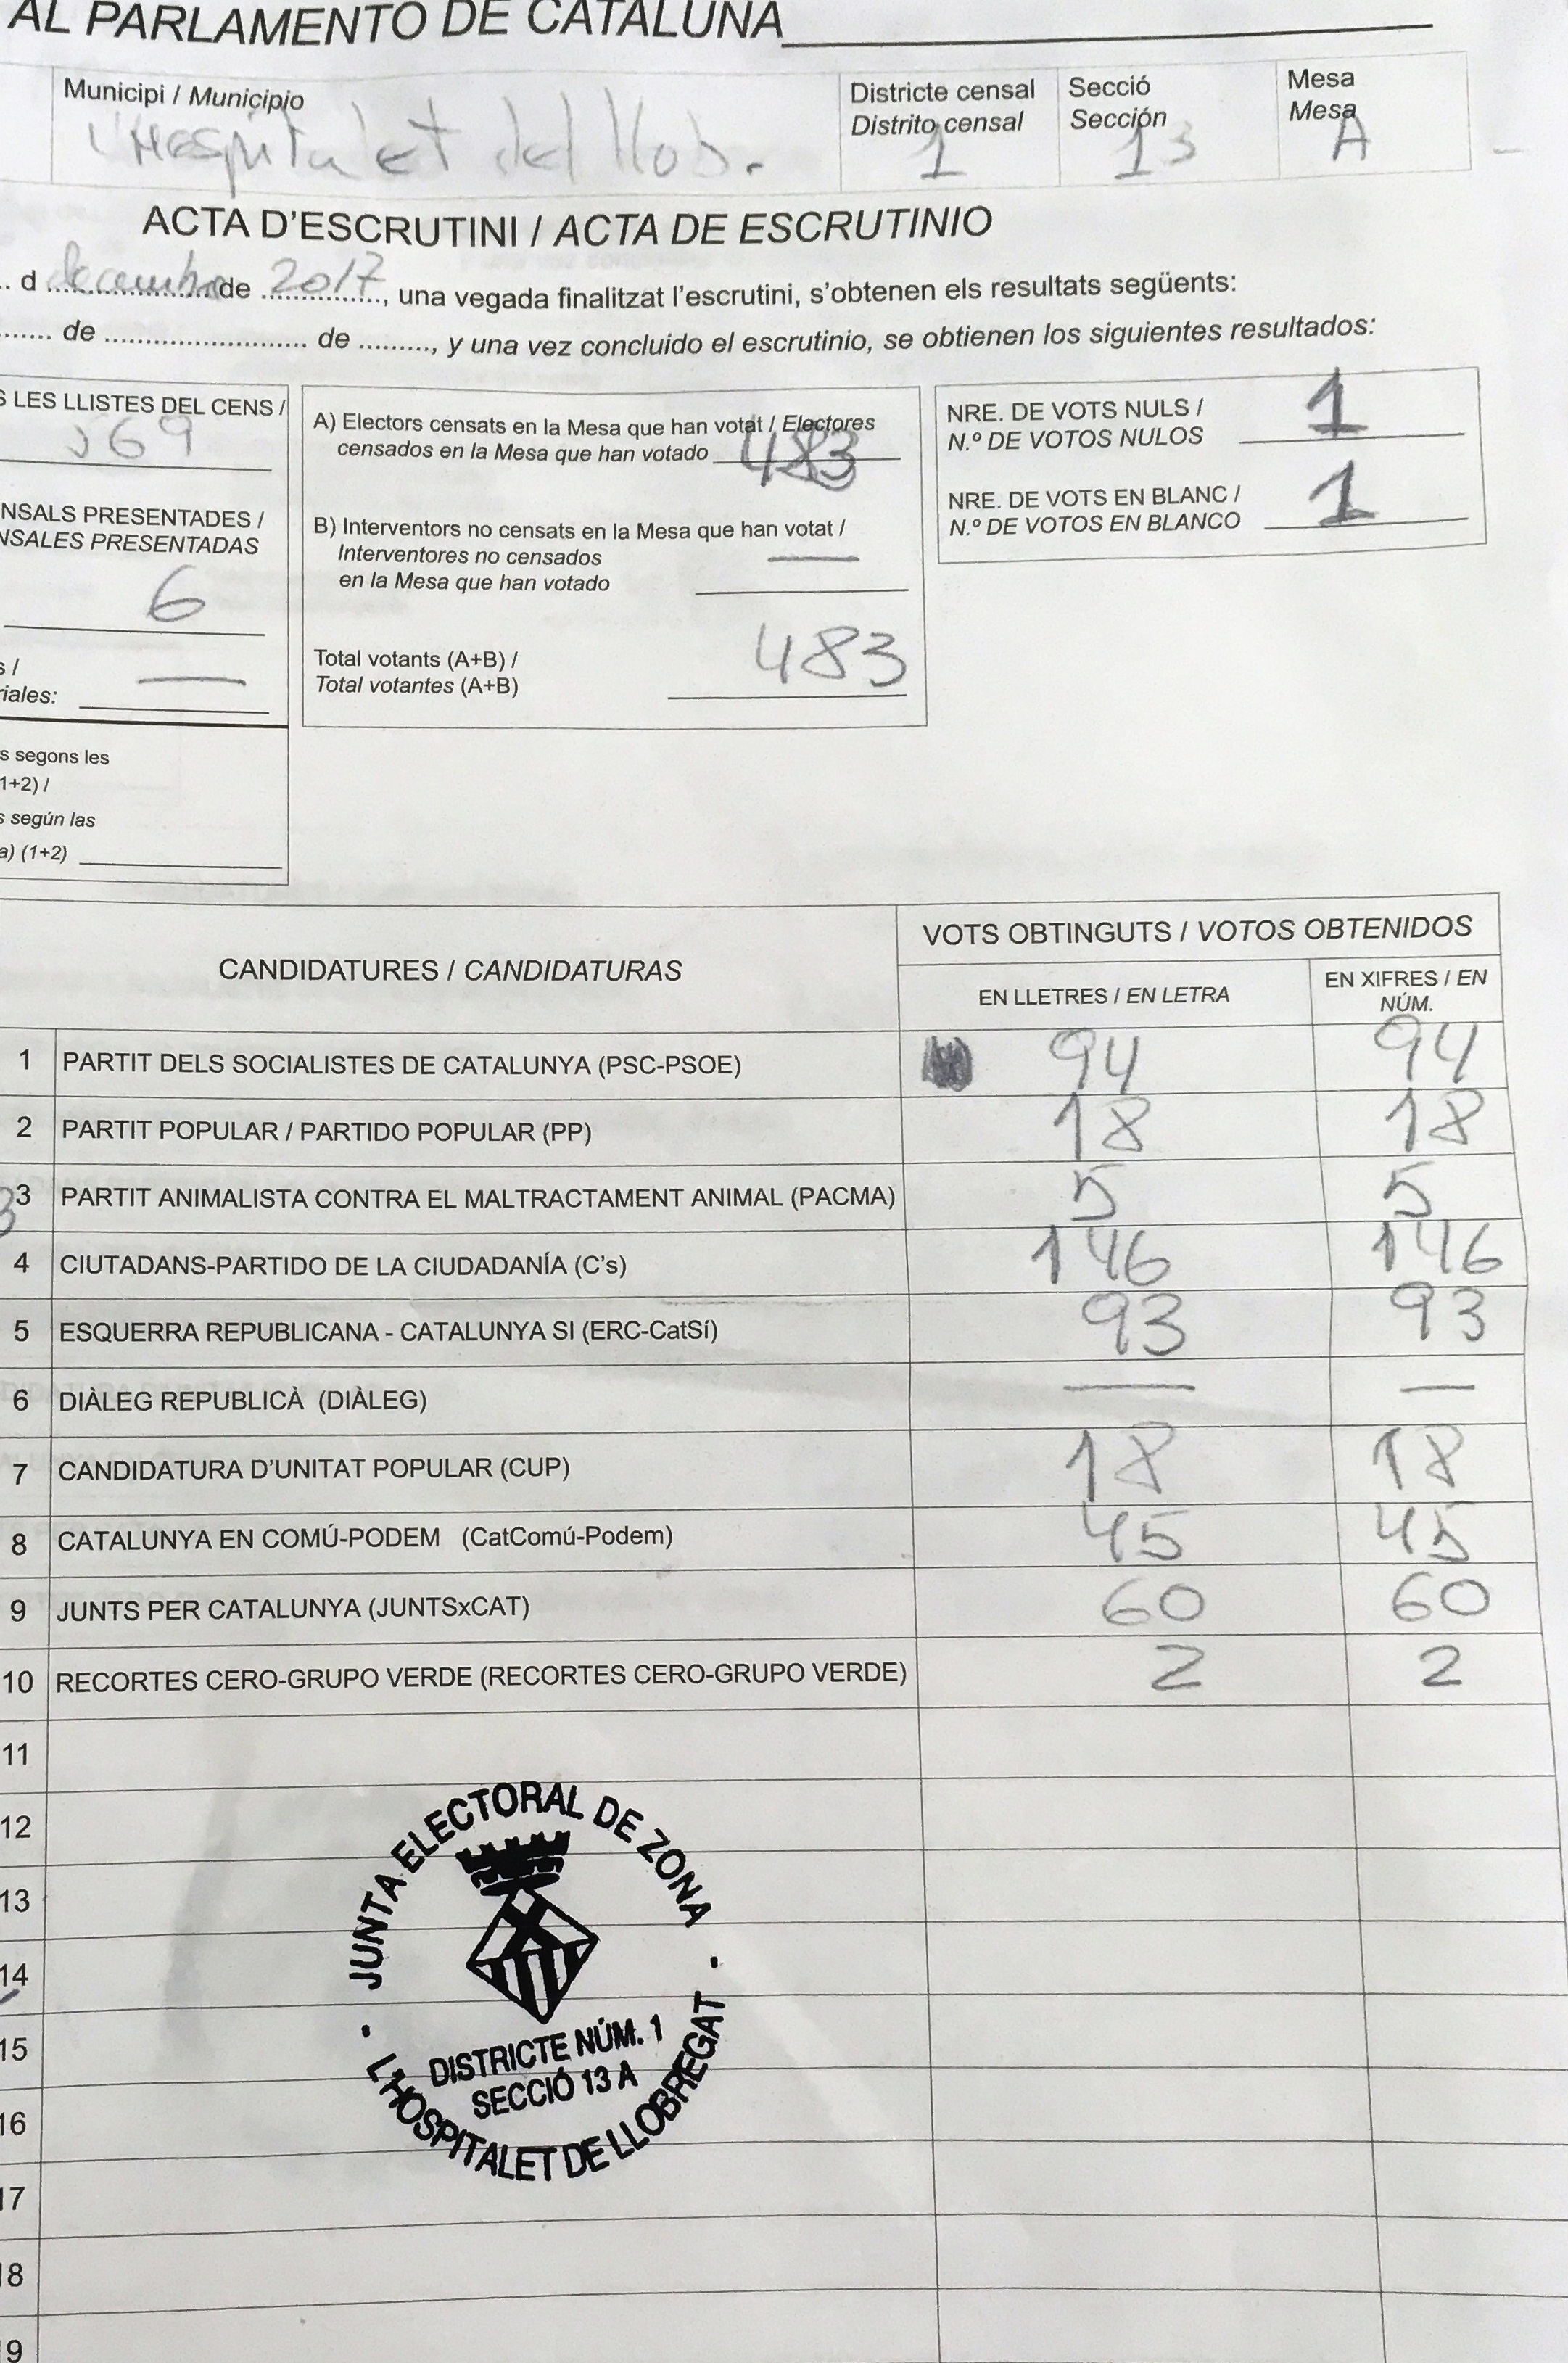 AL PARLAMENTO DE CATALUÑA
Municipi / Municipio
L'Hospitalet del Llob.
Districte censal
Distrito censal
1
Secció
Sección
13
Mesa
Mesa
A
ACTA D'ESCRUTINI / ACTA DE ESCRUTINIO
.. d desembre de 2017, una vegada finalitzat l'escrutini, s'obtenen els resultats següents:
....... de ......................... de ........., y una vez concluido el escrutinio, se obtienen los siguientes resultados:
S LES LLISTES DEL CENS /
569
NSALS PRESENTADES /
NSALES PRESENTADAS
6
s /
riales: —
s segons les
1+2) /
s según las
a) (1+2)
A) Electors censats en la Mesa que han votat / Electores
censados en la Mesa que han votado 483
B) Interventors no censats en la Mesa que han votat /
Interventores no censados —
en la Mesa que han votado
Total votants (A+B) /
Total votantes (A+B) 483
NRE. DE VOTS NULS /
N.º DE VOTOS NULOS 1
NRE. DE VOTS EN BLANC /
N.º DE VOTOS EN BLANCO 1
CANDIDATURES / CANDIDATURAS
VOTS OBTINGUTS / VOTOS OBTENIDOS
EN LLETRES / EN LETRA
EN XIFRES / EN
NÚM.
1 PARTIT DELS SOCIALISTES DE CATALUNYA (PSC-PSOE) 94 94
2 PARTIT POPULAR / PARTIDO POPULAR (PP) 18 18
3 PARTIT ANIMALISTA CONTRA EL MALTRACTAMENT ANIMAL (PACMA) 5 5
4 CIUTADANS-PARTIDO DE LA CIUDADANÍA (C's) 146 146
5 ESQUERRA REPUBLICANA - CATALUNYA SI (ERC-CatSí) 93 93
6 DIÀLEG REPUBLICÀ (DIÀLEG) — —
7 CANDIDATURA D'UNITAT POPULAR (CUP) 18 18
8 CATALUNYA EN COMÚ-PODEM (CatComú-Podem) 45 45
9 JUNTS PER CATALUNYA (JUNTSxCAT) 60 60
10 RECORTES CERO-GRUPO VERDE (RECORTES CERO-GRUPO VERDE) 2 2
11
12
13
14
15
16
17
18
19
JUNTA ELECTORAL DE ZONA
DISTRICTE NÚM. 1
SECCIÓ 13 A
L'HOSPITALET DE LLOBREGAT